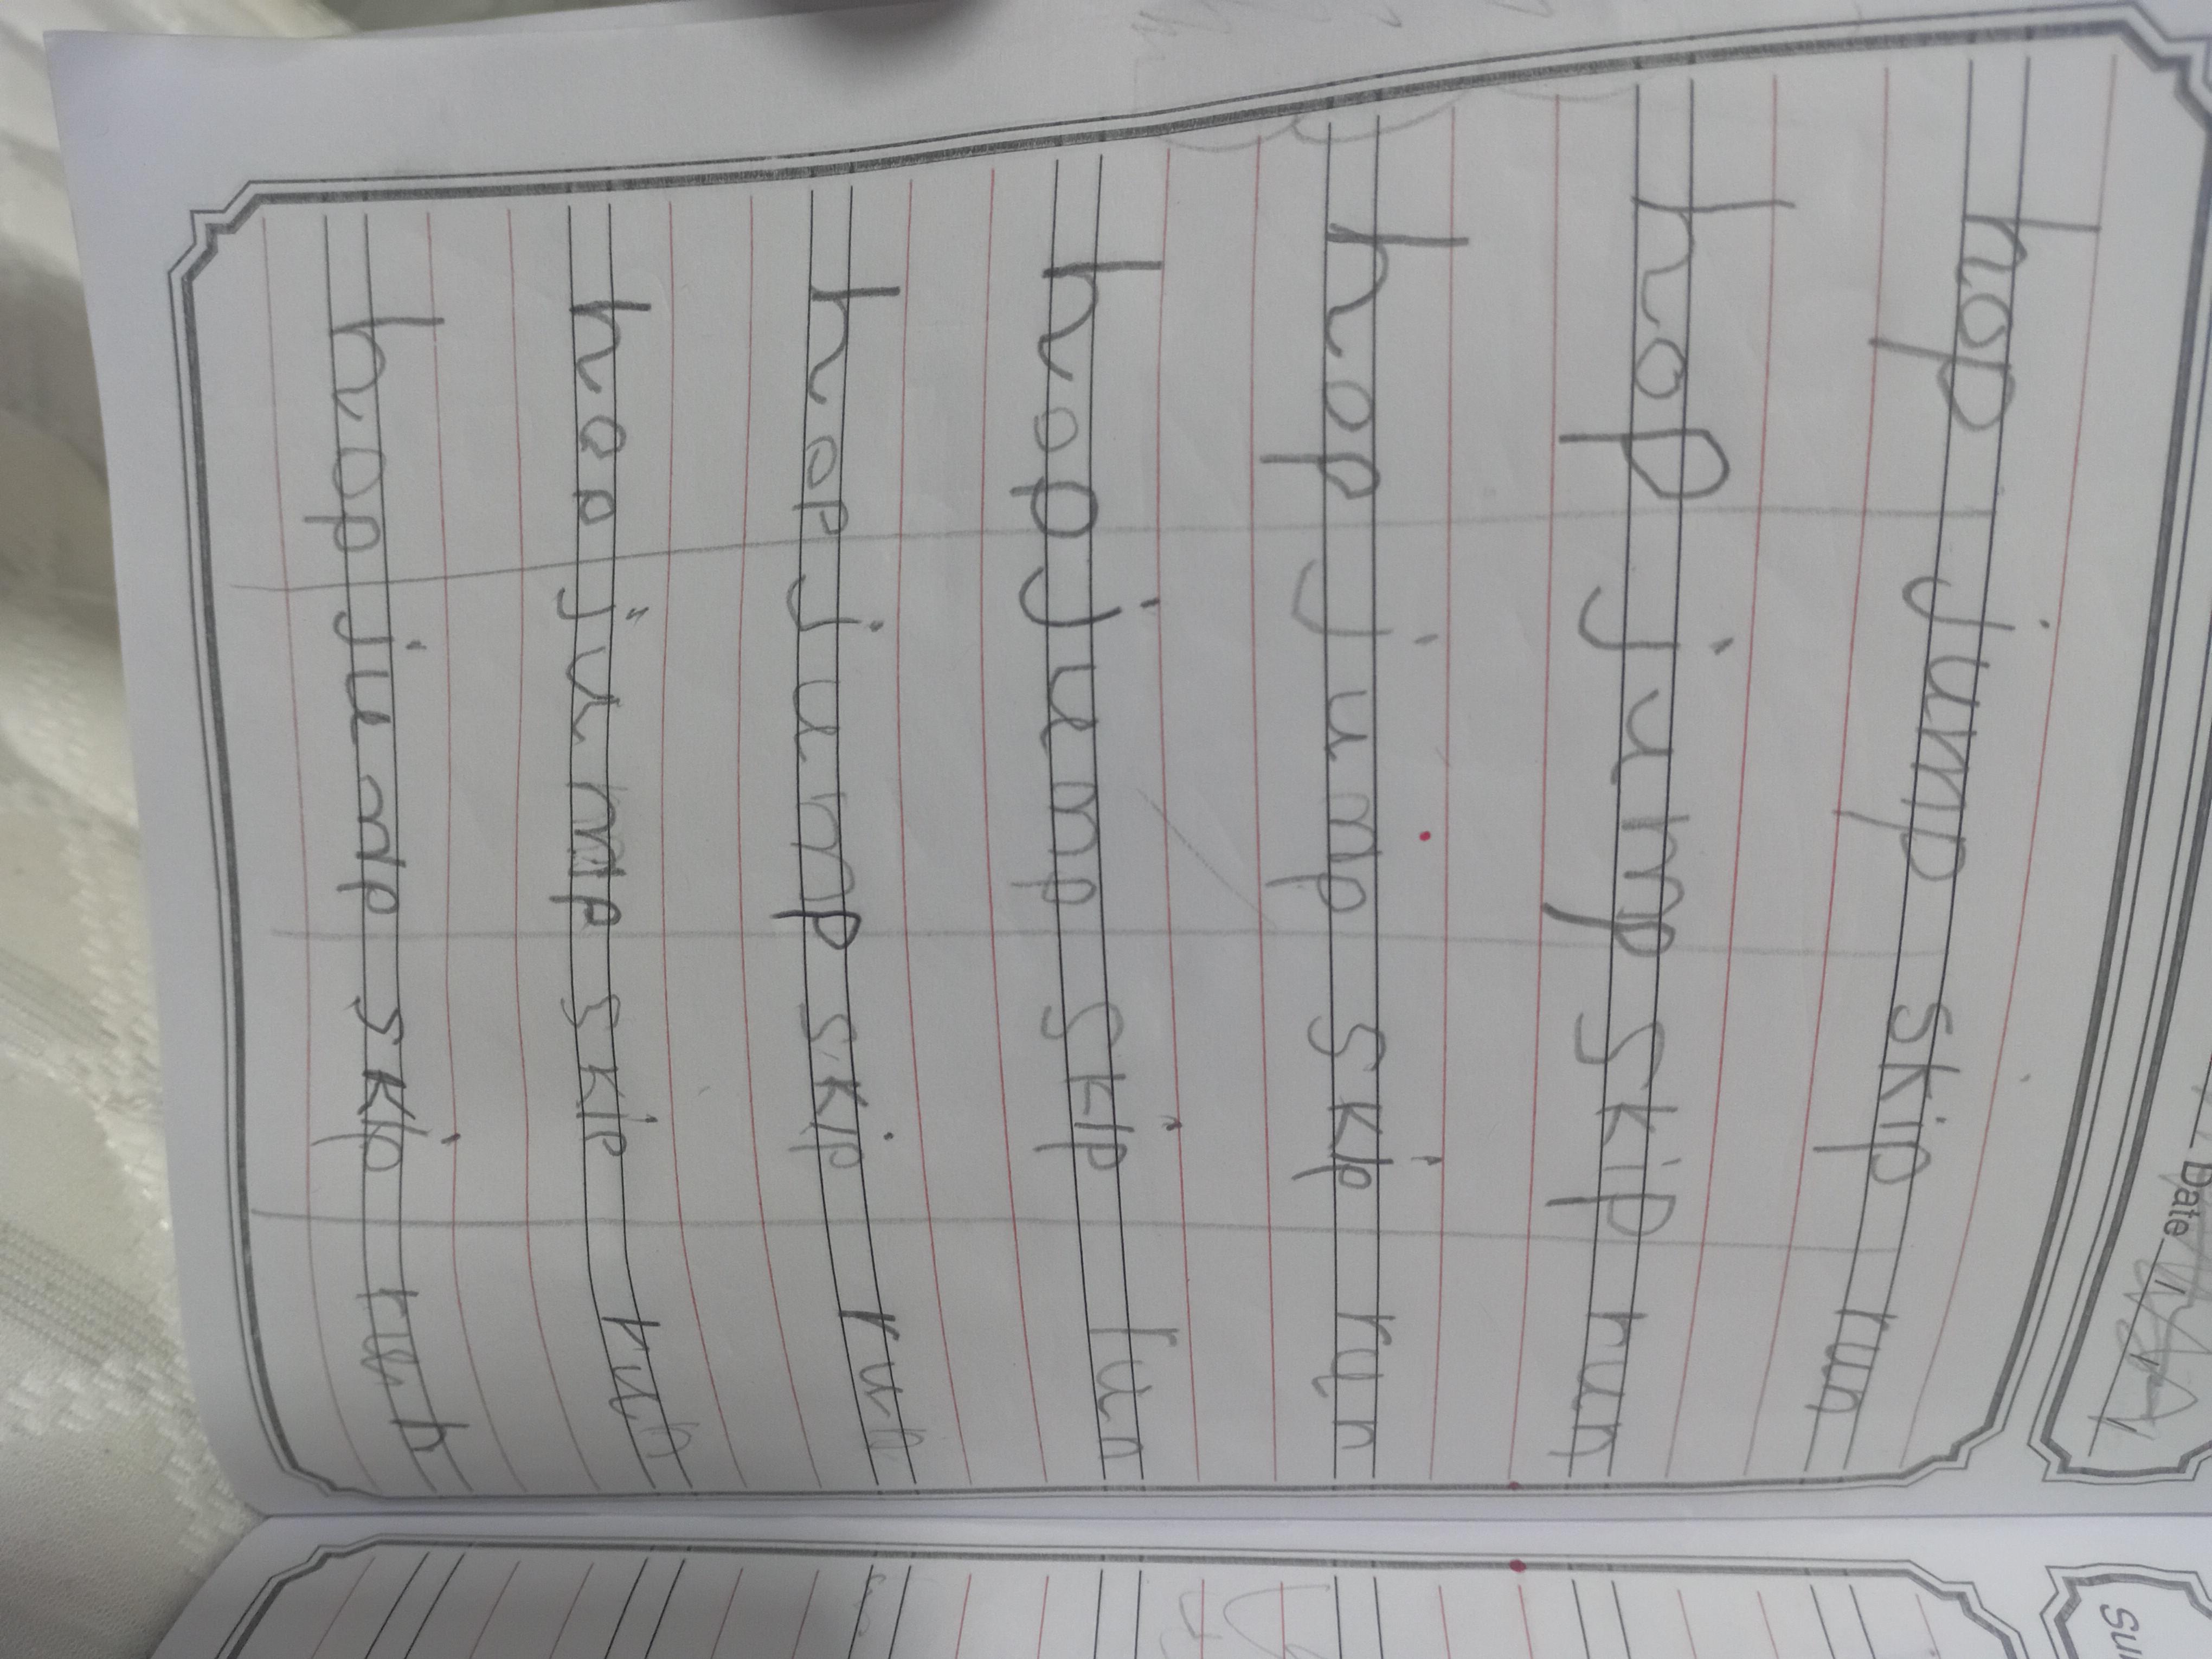 Date
hop jump skip run
hop jump skip run
hop jump skip run
hop jump skip run
hop jump skip run
hop jump skip run
hop jump skip run